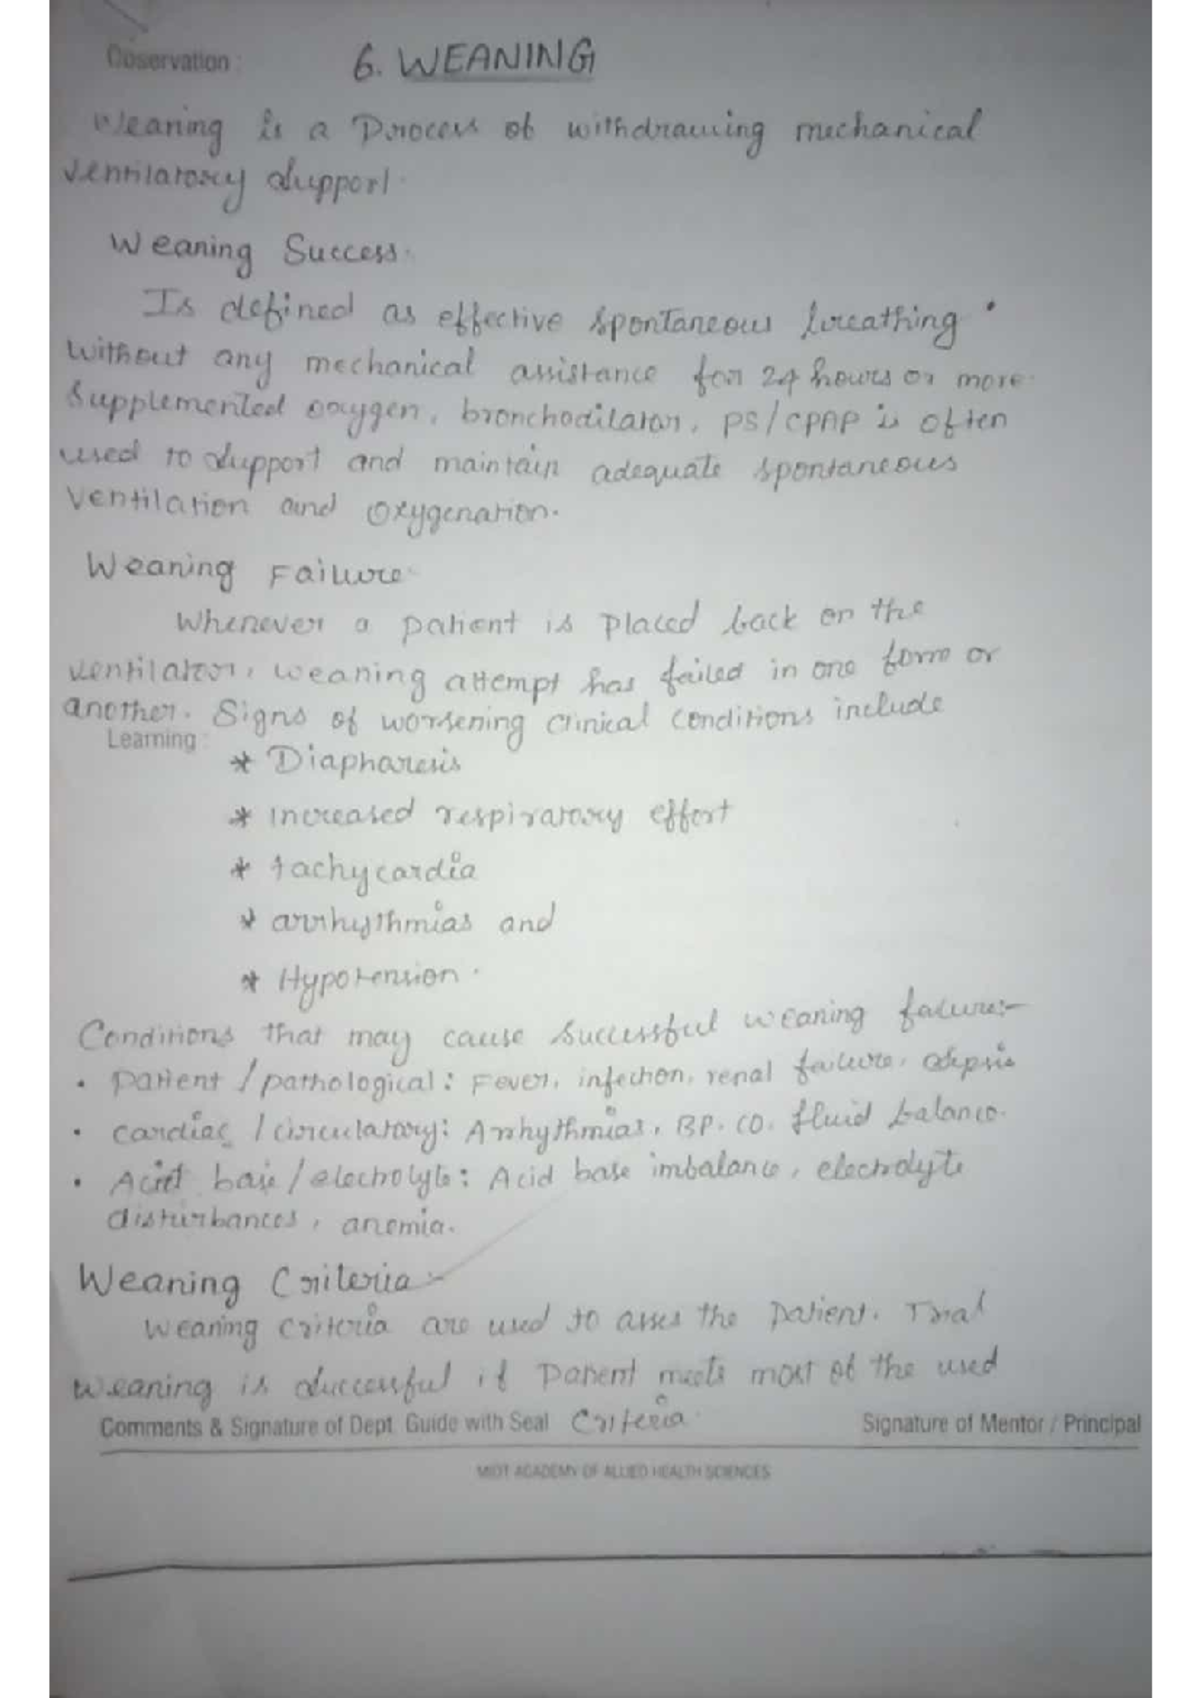 Observation :
6. WEANING
Weaning is a Process of withdrawing mechanical
ventilatory support.
Weaning Success.
Is defined as effective spontaneous breathing
without any mechanical assistance for 24 hours or more.
Supplemented oxygen, bronchodilator, PS/CPAP is often
used to support and maintain adequate spontaneous
ventilation and oxygenation.
Weaning Failure.
Whenever a patient is placed back on the
ventilator, weaning attempt has failed in one form or
another. Signs of worsening clinical conditions include
Learning :
* Diapharesis
* increased respiratory effort
* tachycardia
* arrhythmias and
* Hypotension.
Conditions that may cause successful weaning falure:-
• patient / pathological: Fever, infection, renal failure, sepsis
• cardiac / circulatory: Arrhythmias, BP. CO. fluid balance.
• Acid base / electrolyte: Acid base imbalance, electrolyte
disturbances, anemia.
Weaning Criteria :-
Weaning criteria are used to asses the patient. Trial
weaning is successful if patient meets most of the used
Criteria.
Comments & Signature of Dept. Guide with Seal
Signature of Mentor / Principal
MIOT ACADEMY OF ALLIED HEALTH SCIENCES